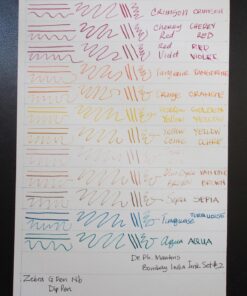 Crimson CRIMSON
Cherry CHERRY
Red RED
Red RED
Violet VIOLET
Tangerine TANGERINE
Orange ORANGE
Golden GOLDEN
Yellow YELLOW
Yellow YELLOW
Ochre OCHRE
Van Dyke VAN DYKE
Brown BROWN
Sepia SEPIA
Turquoise TURQUOISE
Aqua AQUA
Dr. Ph. Martin's
Bombay India Ink Set #2
Zebra G Pen Nib
Dip Pen